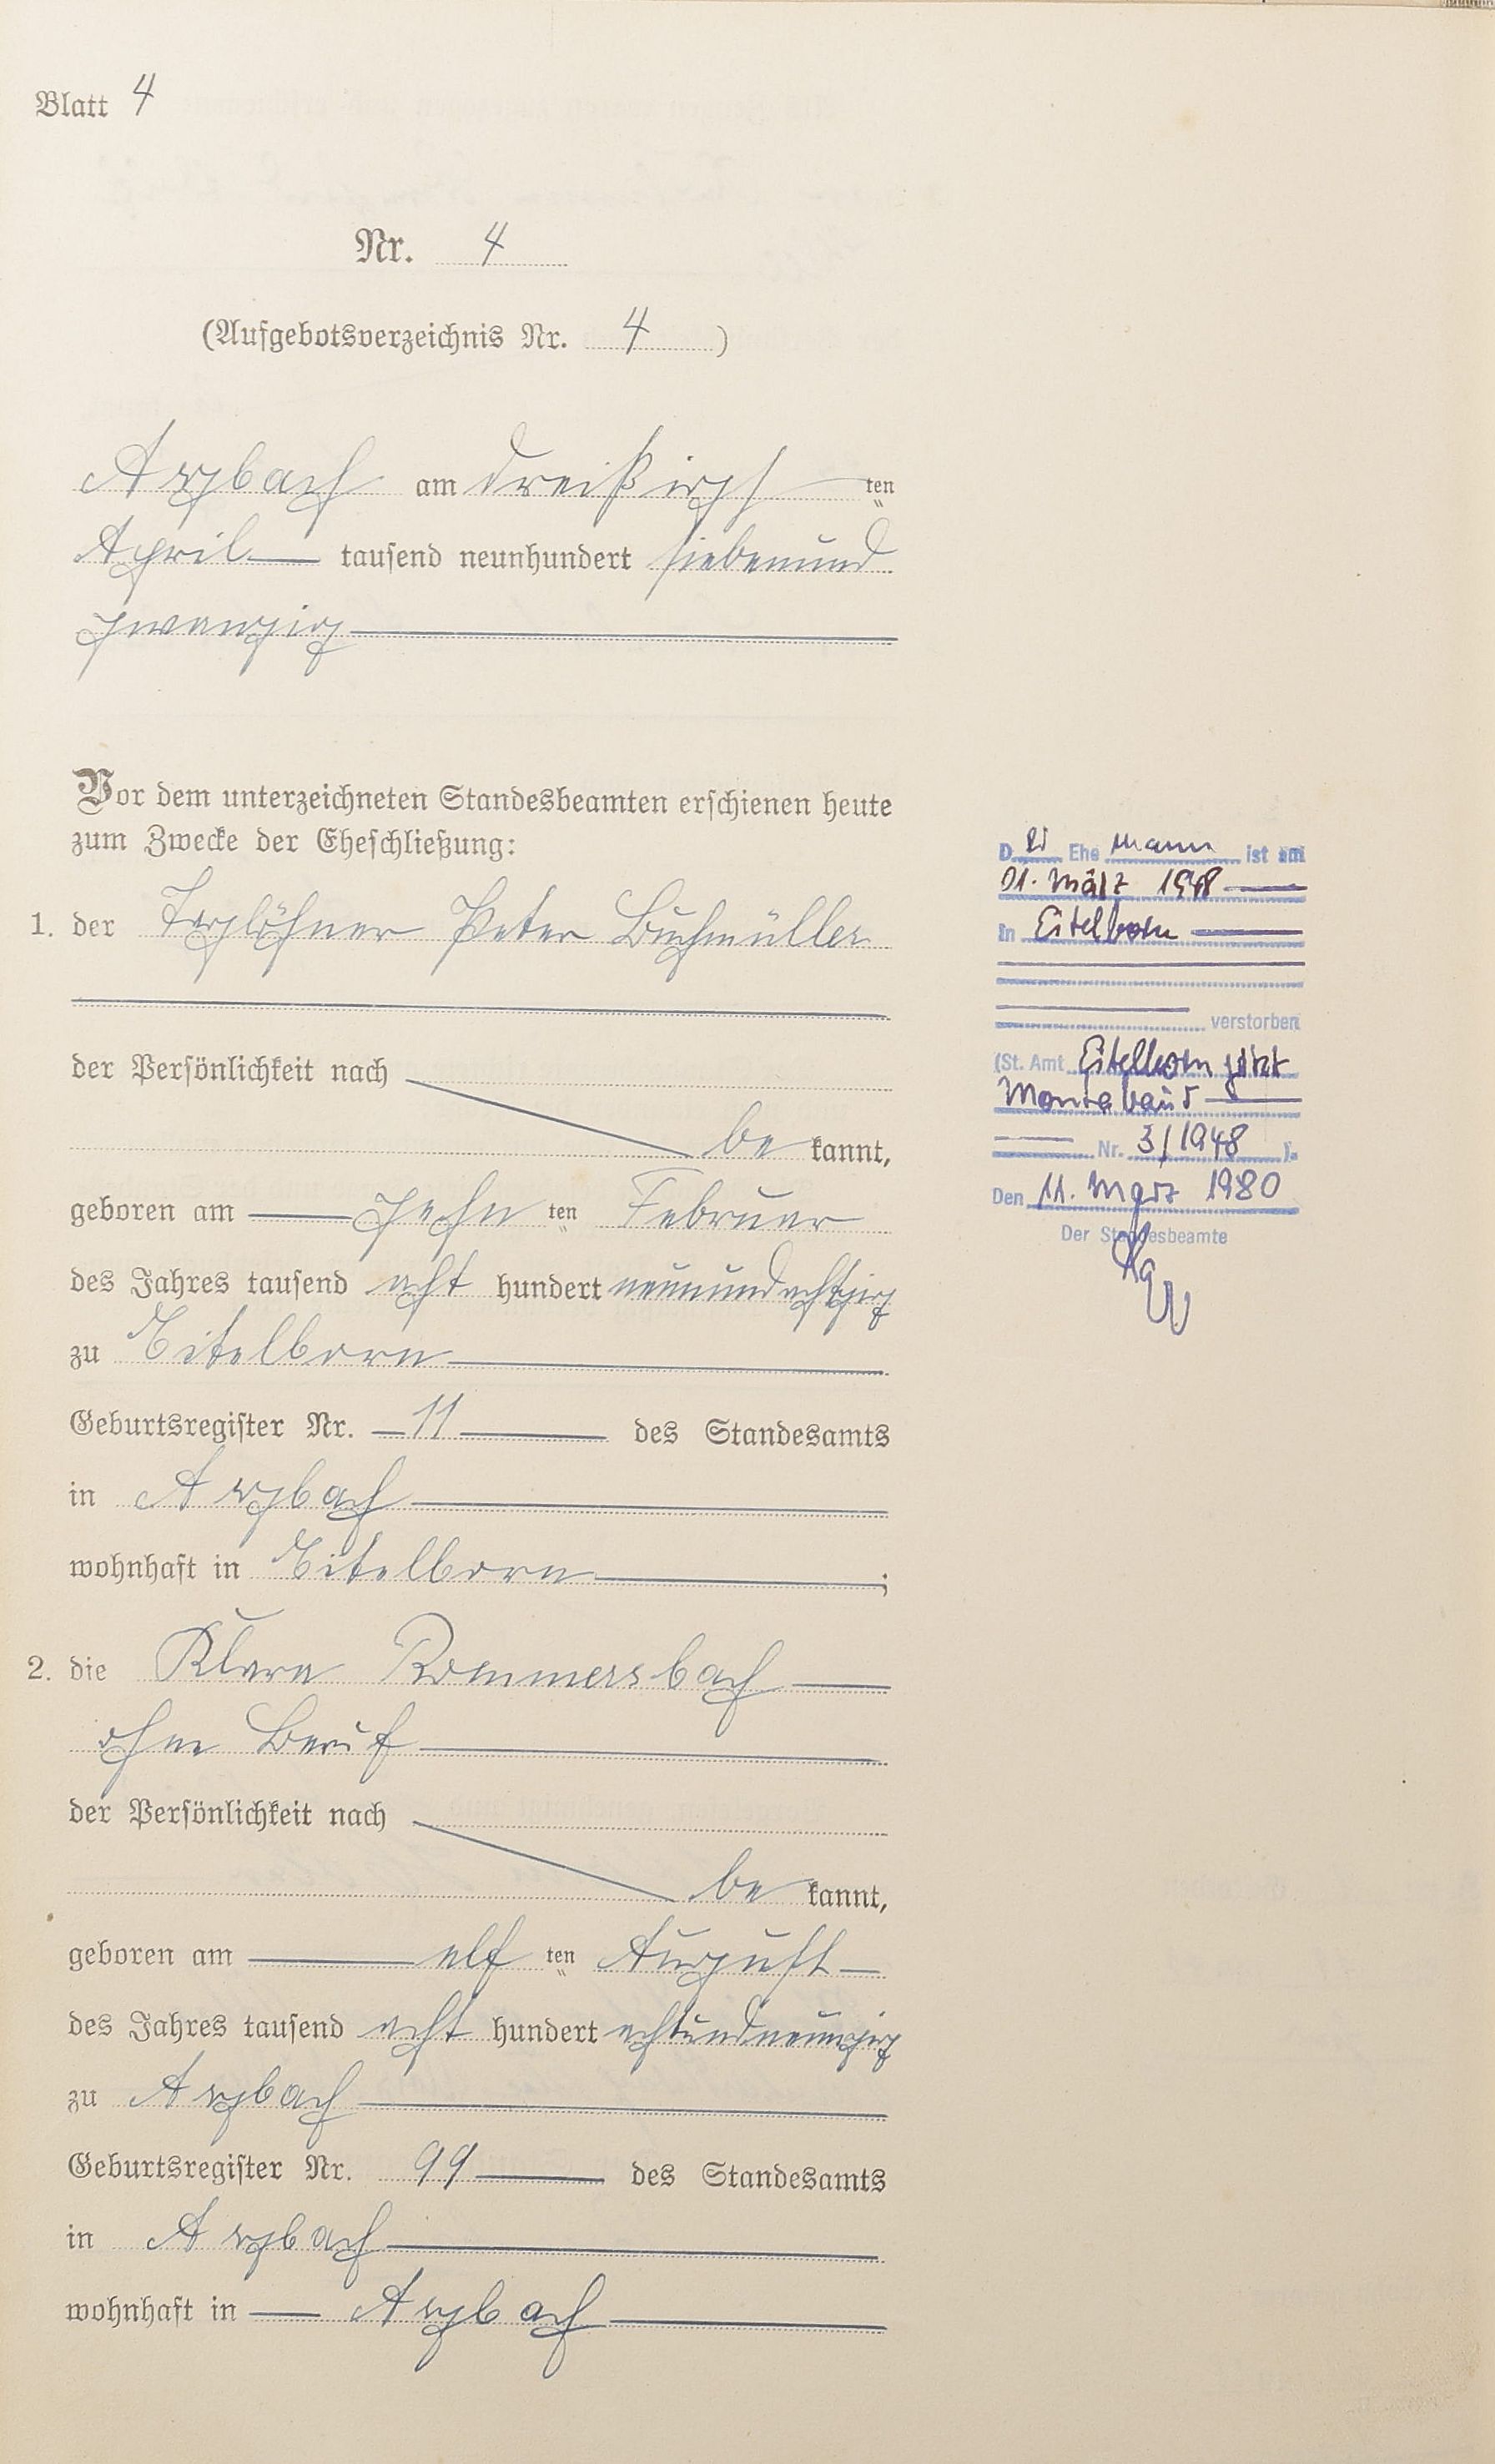 Blatt 4
Nr. 4
(Aufgebotsverzeichnis Nr. 4 )
Arzbach am dreißigsten
April tausend neunhundert siebenund
zwanzig
Vor dem unterzeichneten Standesbeamten erschienen heute
zum Zwecke der Eheschließung:
1. der Taglöhner Peter Buchmüller
der Persönlichkeit nach
be kannt,
geboren am zehn ten Februar
des Jahres tausend acht hundert neunundachtzig
zu Eitelborn
Geburtsregister Nr. 11 des Standesamts
in Arzbach
wohnhaft in Eitelborn ;
2. die Klara Rommersbach
ohne Beruf
der Persönlichkeit nach
be kannt,
geboren am elf ten August
des Jahres tausend acht hundert achtundneunzig
zu Arzbach
Geburtsregister Nr. 99 des Standesamts
in Arzbach
wohnhaft in Arzbach
Der Ehe mann ist am
01. März 1948
in Eitelborn
verstorben
(St. Amt Eitelborn jetzt
Montabaur
Nr. 3/1948 ).
Den 11. März 1980
Der Standesbeamte